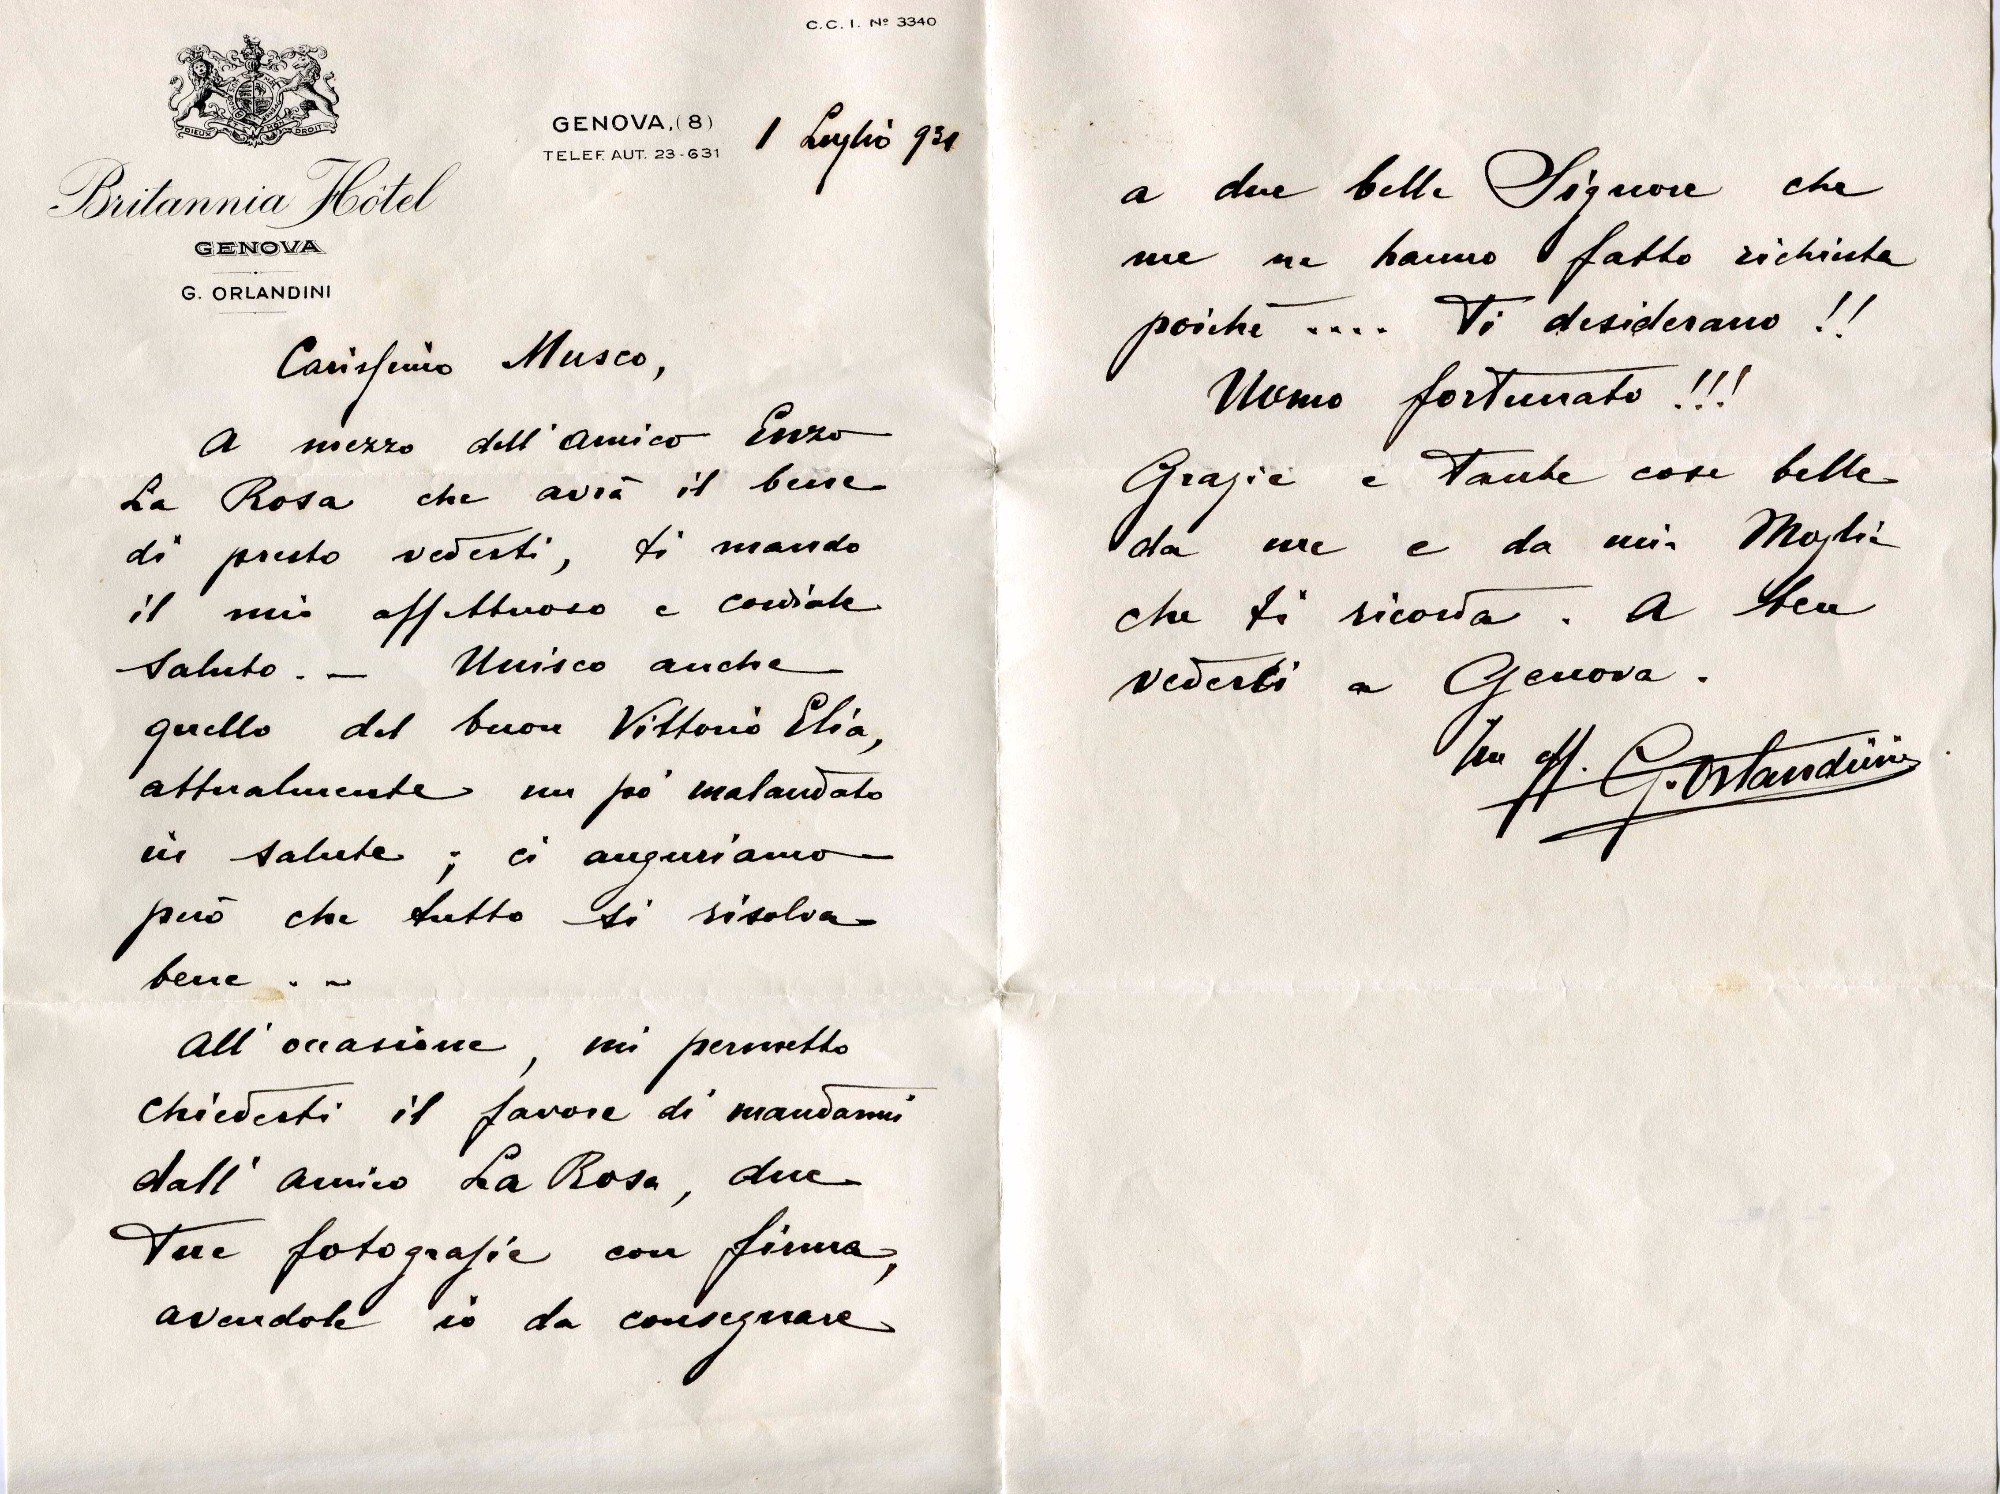 C. C. I. Nº 3340
DIEU ET MON DROIT
Britannia Hôtel
GENOVA
G. ORLANDINI
GENOVA, (8)
TELEF. AUT. 23-631
1 Luglio 931
Carissimo Musco,
A mezzo dell'amico Enzo
La Rosa che avrà il bene
di presto vederti, ti mando
il mio affettuoso e cordiale
saluto. — Unisco anche
quello del buon Vittorio Elia,
attualmente un pò malandato
in salute ; ci auguriamo
però che tutto si risolva
bene . -
All'occasione, mi permetto
chiederti il favore di mandarmi
dall'amico La Rosa, due
Tue fotografie con firma,
avendole io da consegnare
a due belle Signore che
me ne hanno fatto richiesta
poichè .... Ti desiderano !!
Uomo fortunato !!!
Grazie e tante cose belle
da me e da mia Moglie
che ti ricorda . A ben
vederti a Genova .
Tuo aff. G. Orlandini